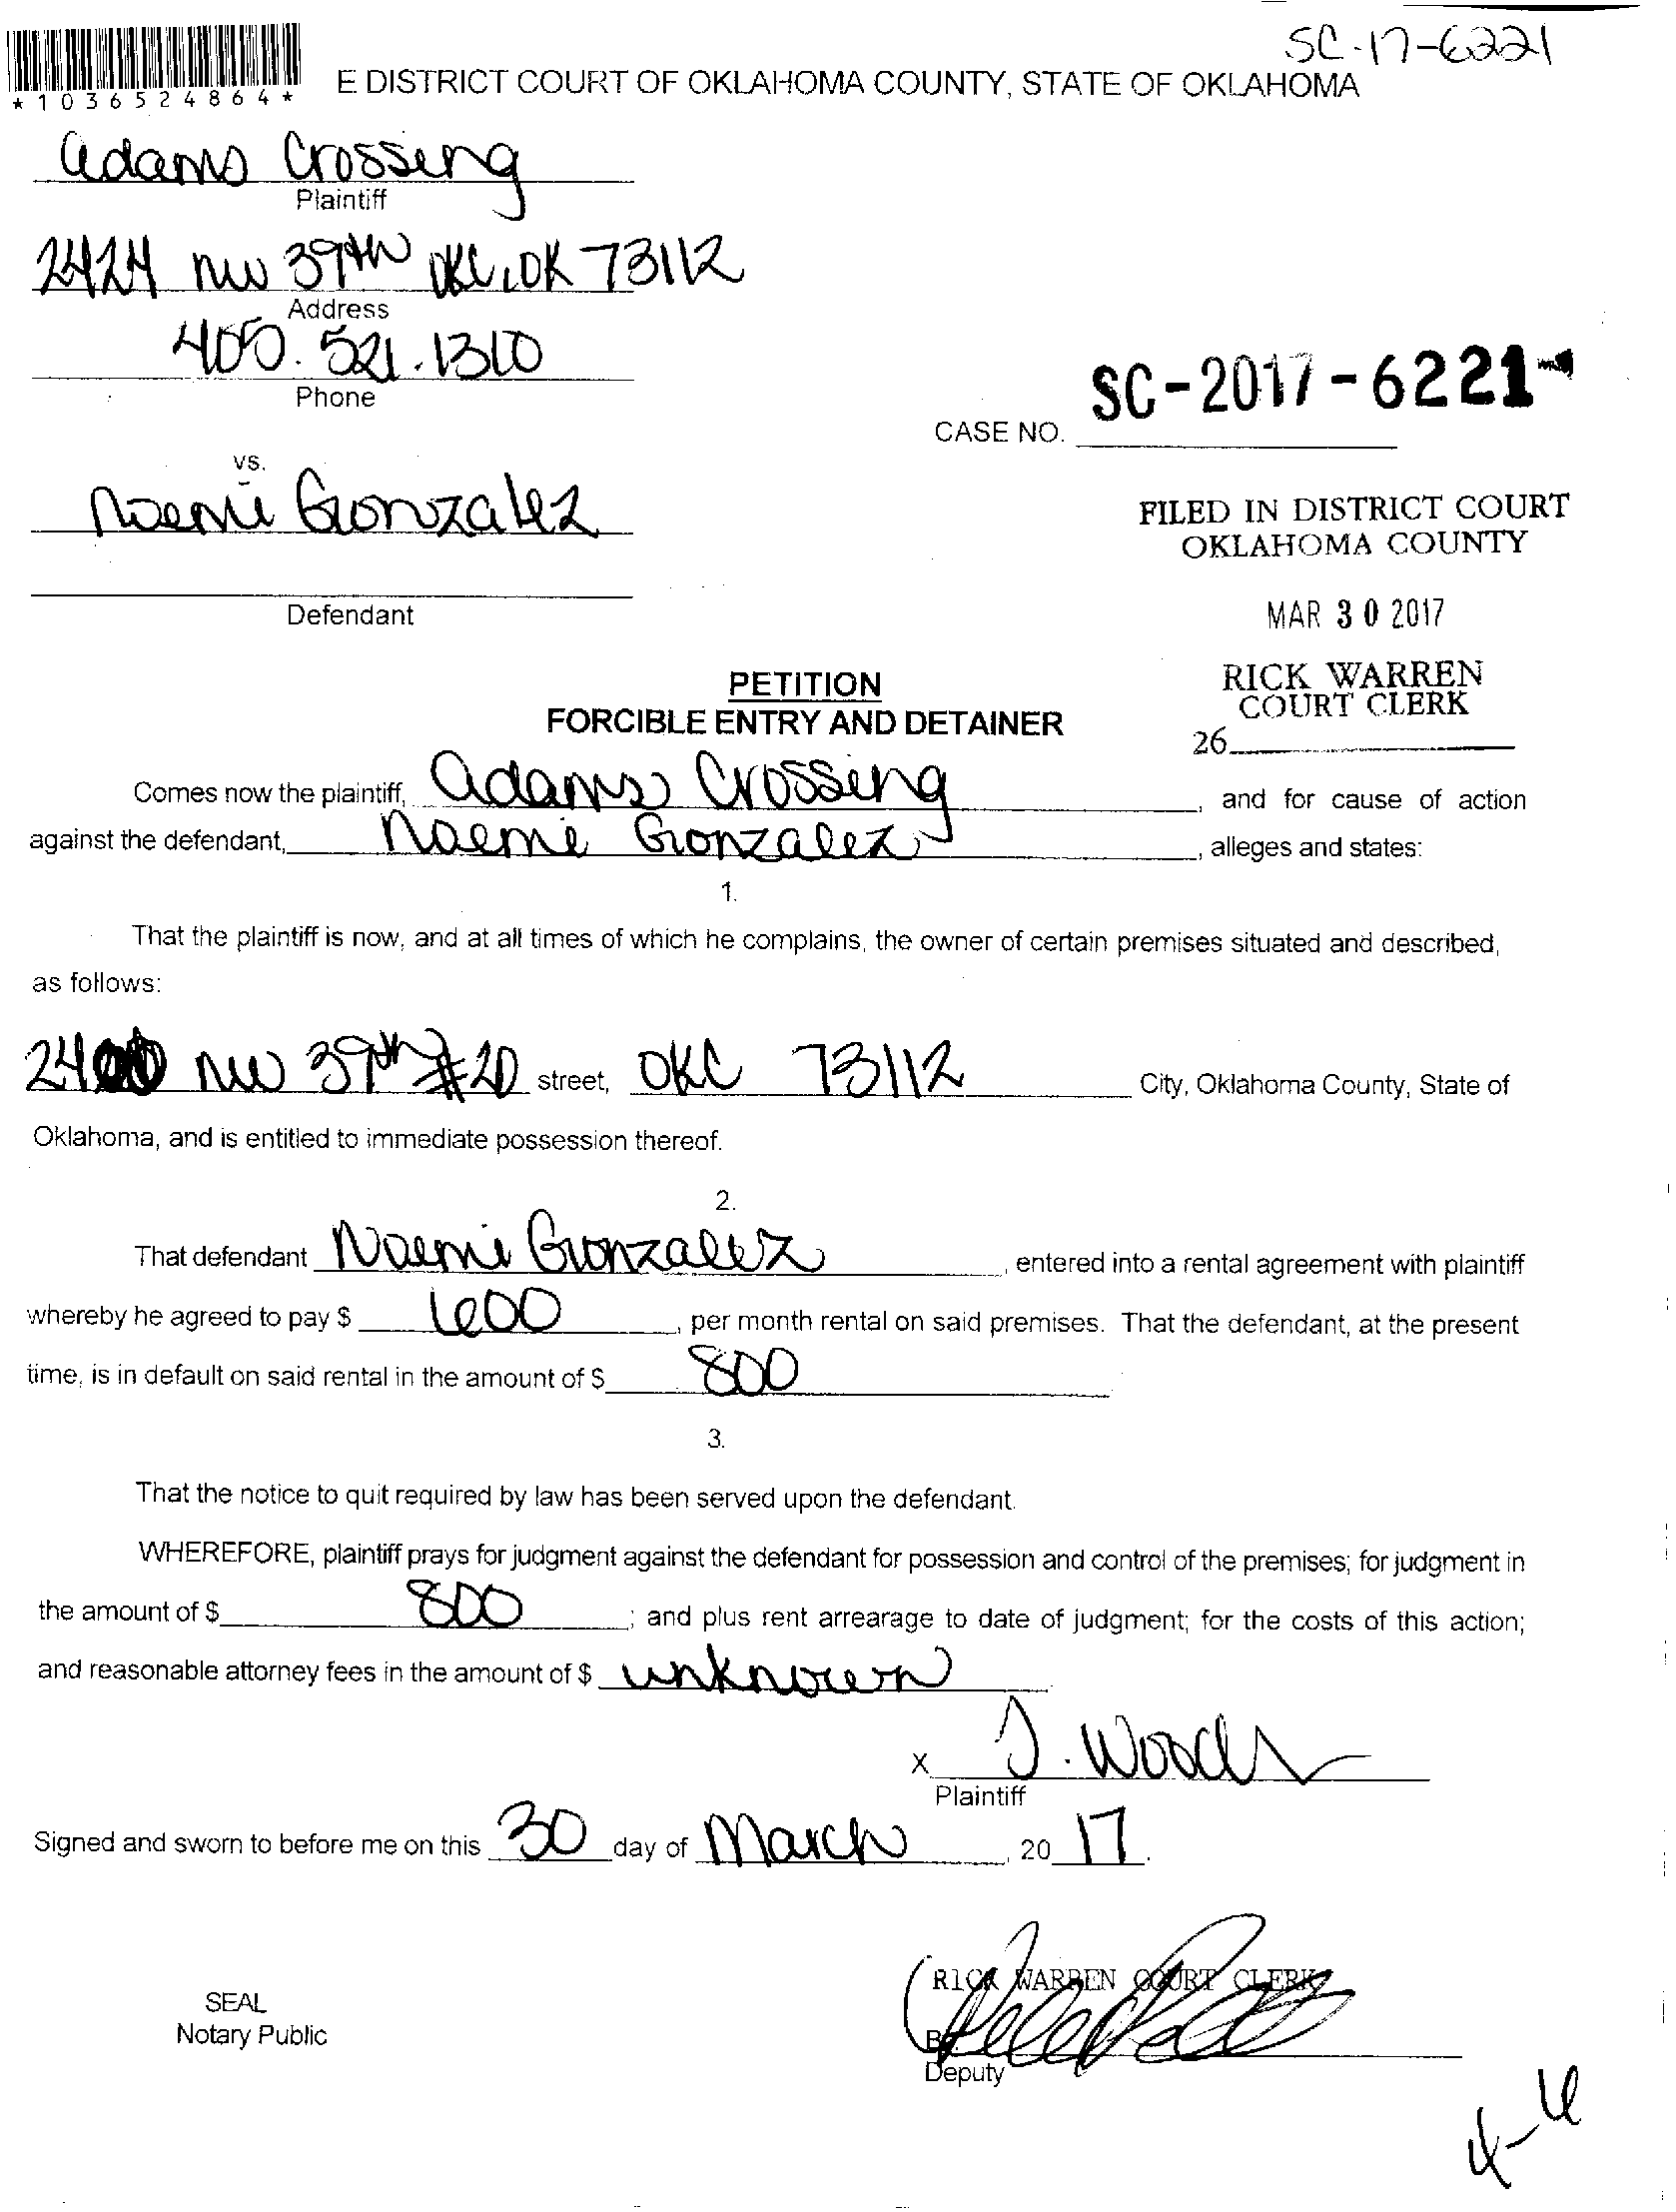 SC-17-6221
*1036524864*
E DISTRICT COURT OF OKLAHOMA COUNTY, STATE OF OKLAHOMA
Adams Crossing
Plaintiff
2424 NW 39th OKC, OK 73112
Address
405.521.1310
Phone
SC-2017-6221
CASE NO.
vs.
Noemi Gonzalez
FILED IN DISTRICT COURT
OKLAHOMA COUNTY
Defendant
MAR 30 2017
PETITION
FORCIBLE ENTRY AND DETAINER
RICK WARREN
COURT CLERK
26
Comes now the plaintiff, Adams Crossing, and for cause of action
against the defendant, Noemi Gonzalez, alleges and states:
1.
That the plaintiff is now, and at all times of which he complains, the owner of certain premises situated and described,
as follows:
2400 NW 39th #20 street, OKC 73112 City, Oklahoma County, State of
Oklahoma, and is entitled to immediate possession thereof.
2.
That defendant Noemi Gonzalez, entered into a rental agreement with plaintiff
whereby he agreed to pay $ 600, per month rental on said premises. That the defendant, at the present
time, is in default on said rental in the amount of $ 800
3.
That the notice to quit required by law has been served upon the defendant.
WHEREFORE, plaintiff prays for judgment against the defendant for possession and control of the premises; for judgment in
the amount of $ 800; and plus rent arrearage to date of judgment; for the costs of this action;
and reasonable attorney fees in the amount of $ unknown
X J. Woods
Plaintiff
Signed and sworn to before me on this 30 day of March, 20 17.
RICK WARREN COURT CLERK
SEAL
Notary Public
By
Deputy
4-6